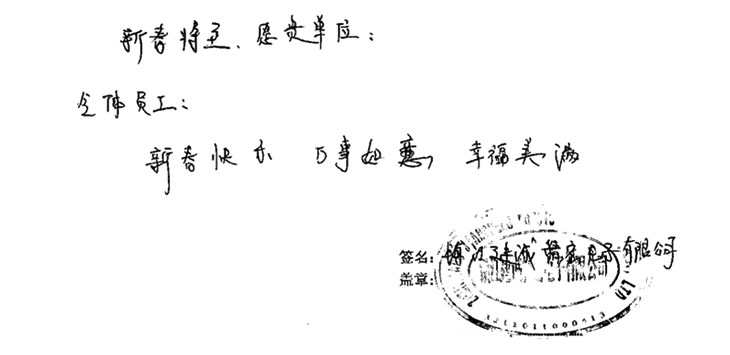 新春将至、愿贵单位：
全体员工：
新春快乐 万事如意， 幸福美满
签名：镇江建诚精密电子有限公司
盖章：
LTD
3211011000413